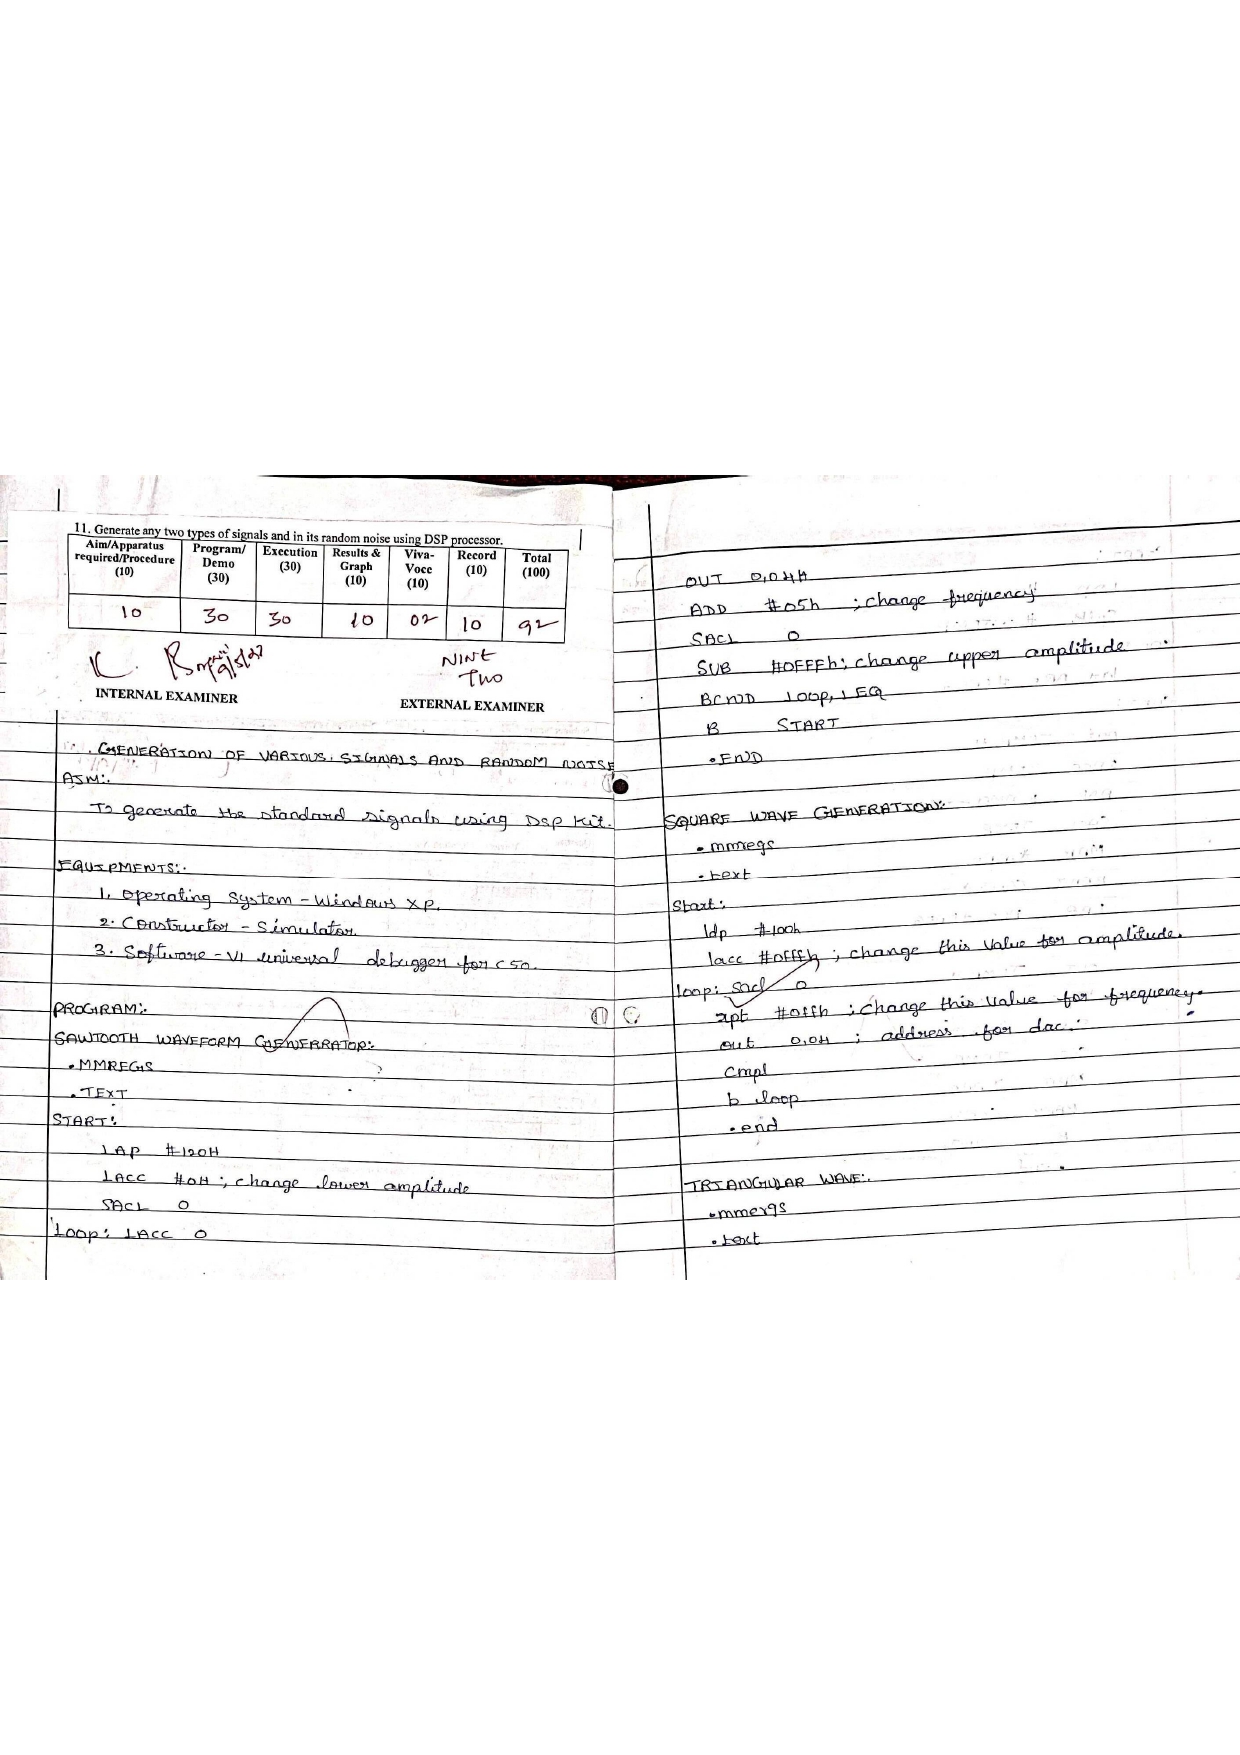 11. Generate any two types of signals and in its random noise using DSP processor.
Aim/Apparatus required/Procedure (10) Program/ Demo (30) Execution (30) Results & Graph (10) Viva-Voce (10) Record (10) Total (100)
10 30 30 10 02 10 92
K.
NINE
TWO
INTERNAL EXAMINER EXTERNAL EXAMINER
GENERATION OF VARIOUS SIGNALS AND RANDOM NOISE
AIM:-
To generate the standard signals using DSP kit.
EQUIPMENTS:-
1. Operating System - Windows XP.
2. Constructor - Simulator
3. Software - VI universal debugger for C50.
PROGRAM:-
SAWTOOTH WAVEFORM GENERRATOR:-
.MMREGS
.TEXT
START:
LAP #120H
LACC #0H ; change lower amplitude
SACL 0
Loop: LACC 0
OUT 0,04H
ADD #05h ; change frequency
SACL 0
SUB #0FFFh ; change upper amplitude
BCND LOOP, LEQ
B START
.END
SQUARE WAVE GENERATION:-
.mmregs
.text
Start:
ldp #100h
lacc #0fffh ; change this value for amplitude.
loop: sacl 0
rpt #0ffh ; change this value for frequency.
out 0,04 ; address for dac.
cmpl
b loop
.end
TRIANGULAR WAVE:-
.mmergs
.text